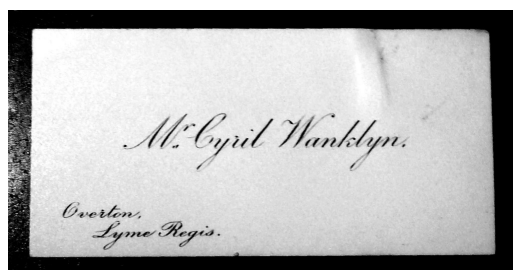 Mr. Cyril Wanklyn.
Overton,
Lyme Regis.